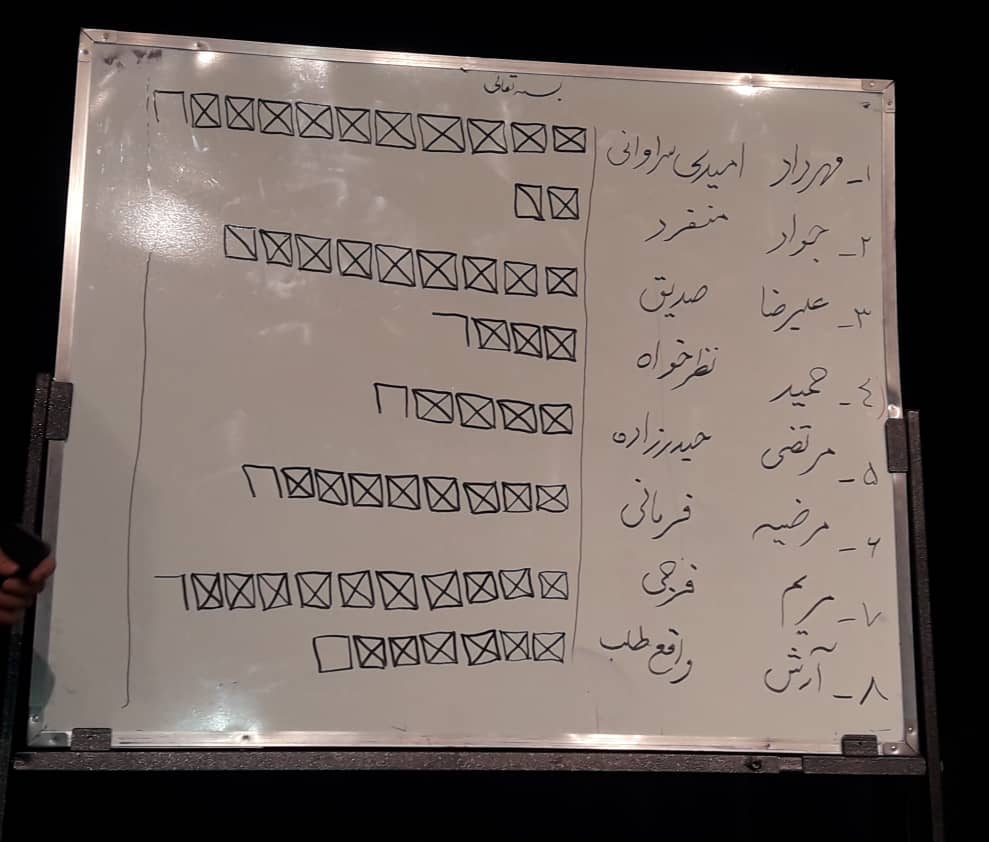 بسمه تعالی
۱- مهرداد امیدی سراوانی
۲- جواد منفرد
۳- علیرضا صدیق
٤- حمید نظرخواه
۵- مرتضی حیدرزاده
۶- مرضیه فرمانی
۷- مریم فرجی
۸- آرش واقع طلب